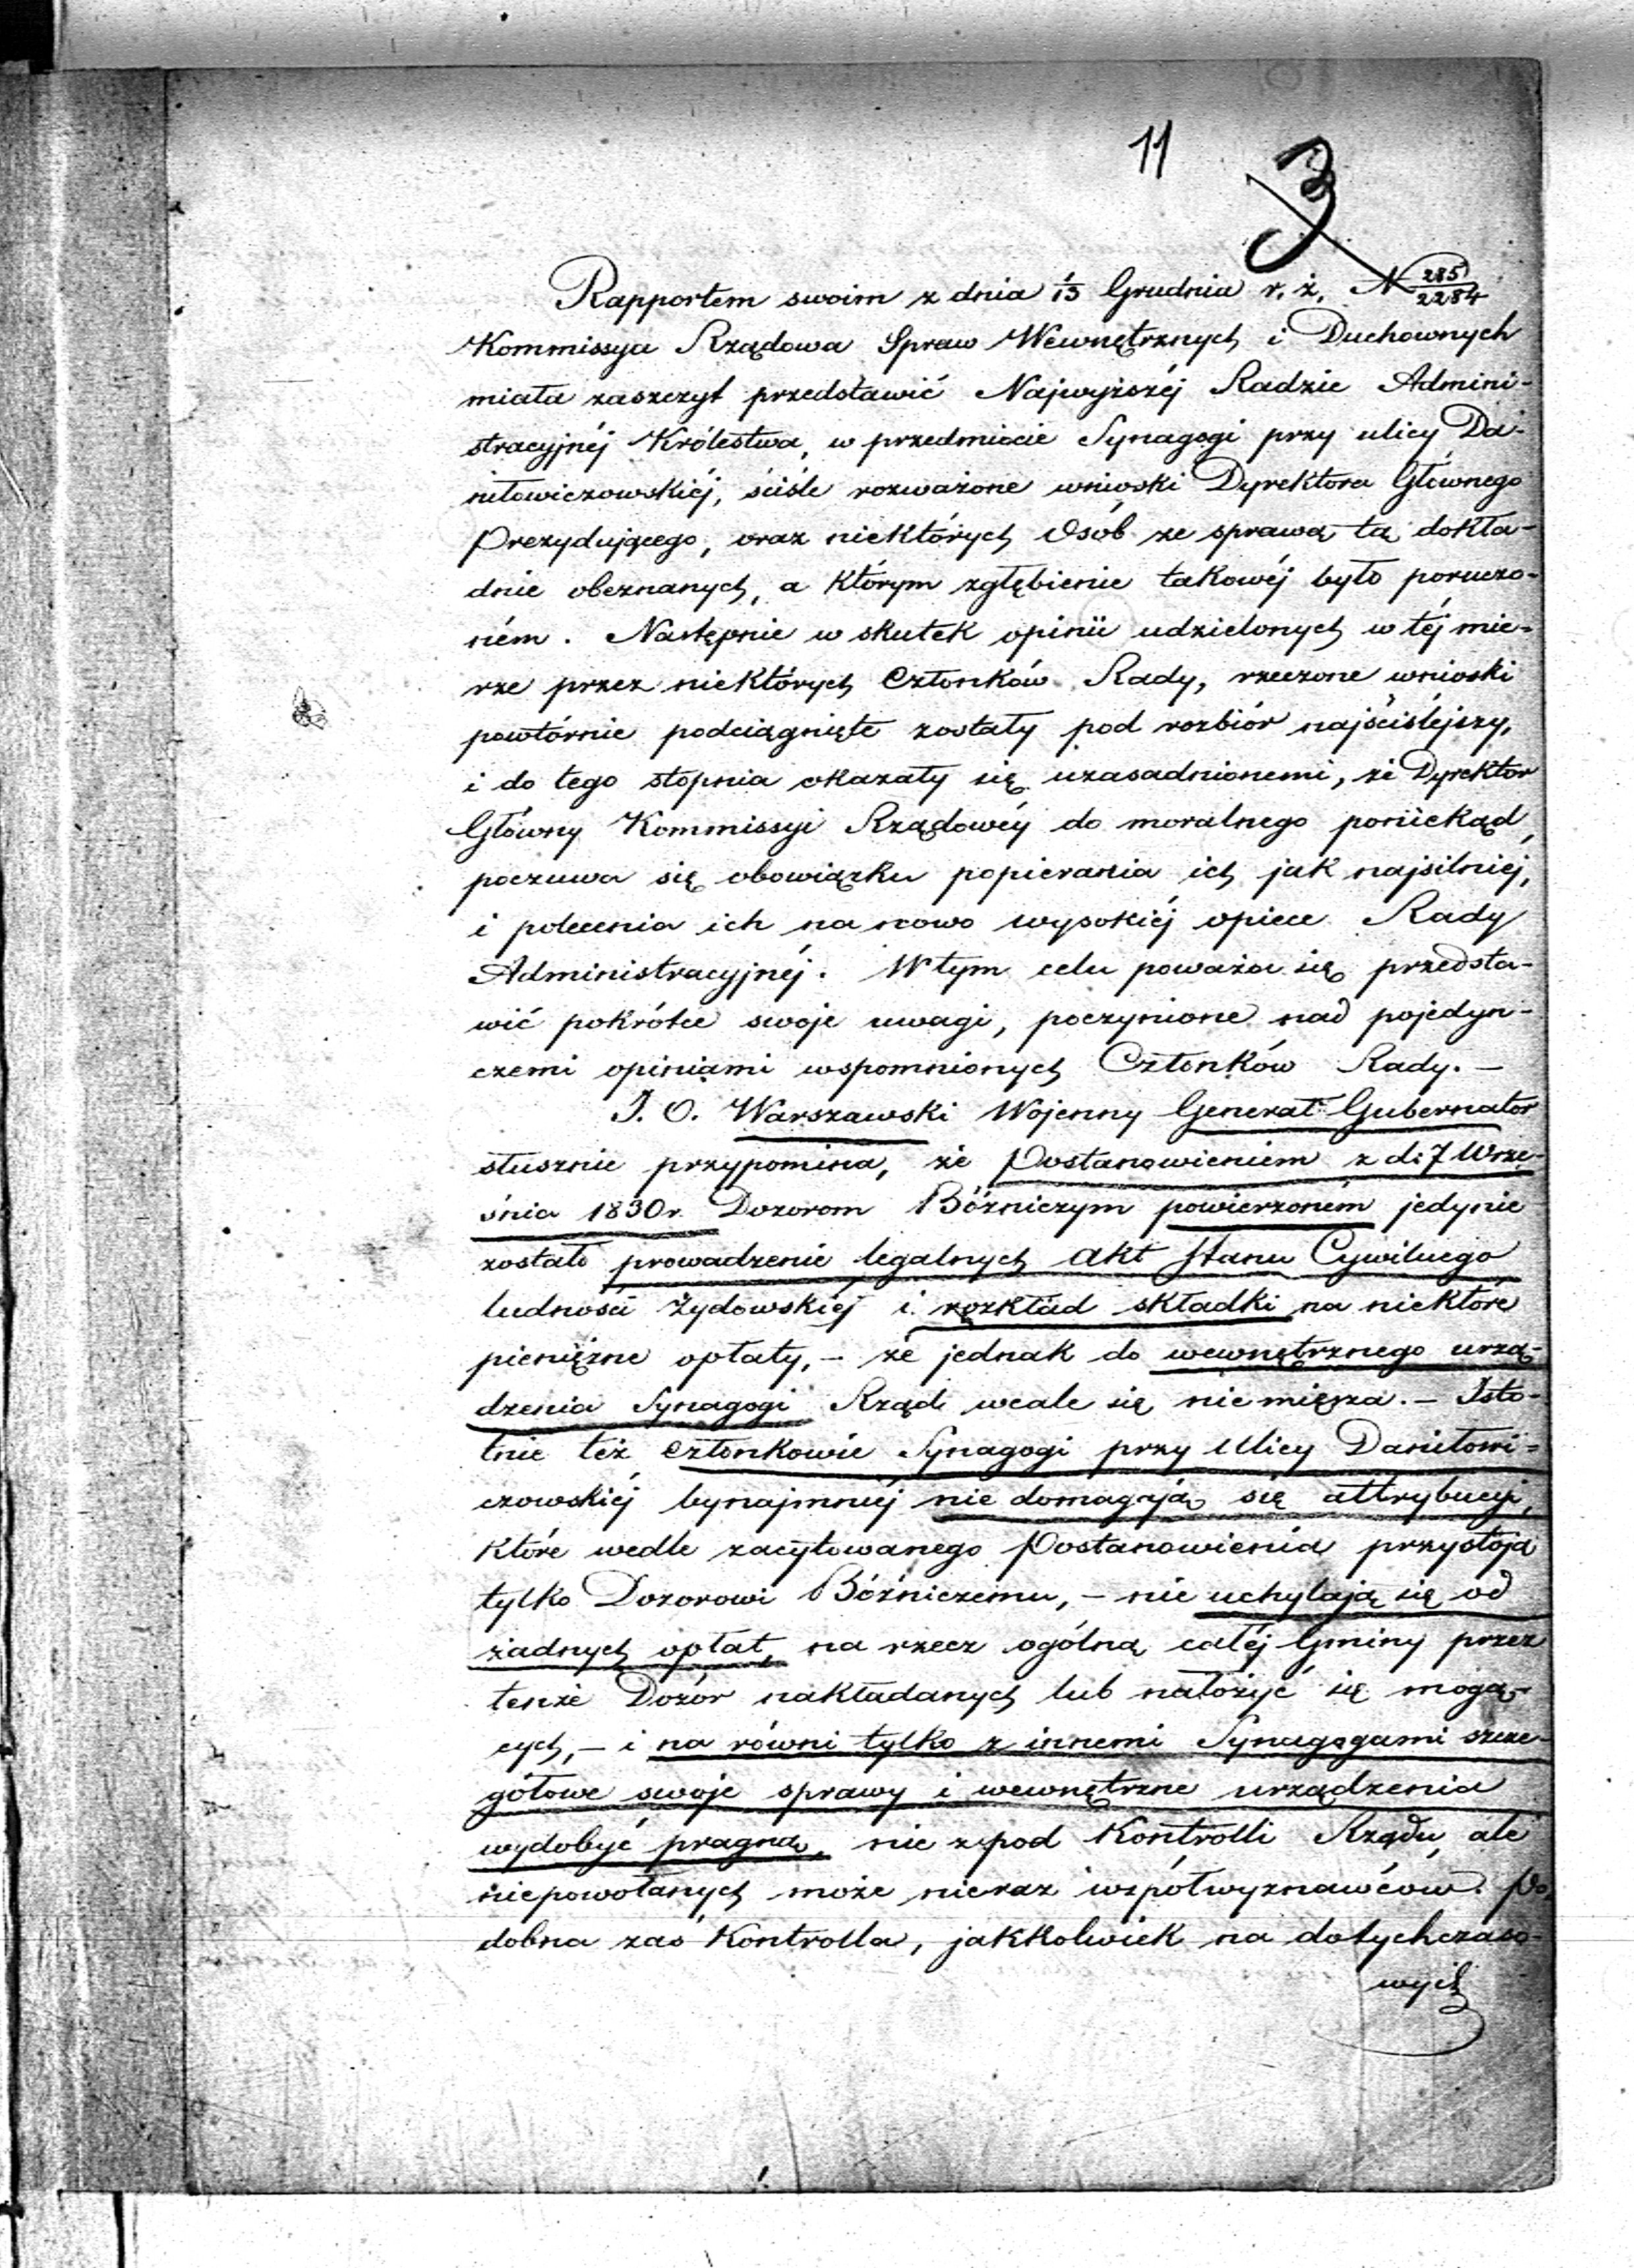 11
3
Rapportem swoim z dnia 1/13 Grudnia r. z. N 285/2284
Kommissya Rządowa Spraw Wewnętrznych i Duchownych
miała zaszczyt przedstawić Najwyższéj Radzie Admini-
stracyjnéj Królestwa, w przedmiocie Synagogi przy ulicy Da-
niłowiczowskiéj, ściśle rozważone wnioski Dyrektora Głównego
Prezydującego, oraz niektórych Osób ze sprawą tą dokła-
dnie obeznanych, a którym zgłębienie takowéj było poruczo-
ném. Następnie w skutek opinii udzielonych w téj mie-
rze przez niektórych Członków Rady, rzeczone wnioski
powtórnie podciągnięte zostały pod rozbiór najściślejszy,
i do tego stopnia okazały się uzasadnionemi, że Dyrektor
Główny Kommissyi Rządowéy do moralnego poniekąd
poczuwa się obowiązku popierania ich jak najsilniéj,
i polecenia ich na nowo wysokiéj opiece Rady
Administracyjnéj. W tym celu poważa się przedsta-
wić pokrótce swoje uwagi, poczynione nad pojedyn-
czemi opiniami wspomnionych Członków Rady. —
J. O. Warszawski Wojenny Generał Gubernator
słusznie przypomina, że Postanowieniem z d: 7 Wrze-
śnia 1830 r. Dozorom Bóżniczym powierzoném jedynie
zostało prowadzenie legalnych akt Stanu Cywilnego
ludności Żydowskiéj i rozkład składki na niektóre
pieniężne opłaty, — że jednak do wewnętrznego urzą-
dzenia Synagogi Rząd wcale się nie miesza. — Isto-
tnie też członkowie Synagogi przy Ulicy Daniłowi=
czowskiéj bynajmniéj nie domagają się attrybucyi,
które wedle zacytowanego Postanowienia przystoją
tylko Dozorowi Bóżniczemu, — nie uchylają się od
żadnych opłat, na rzecz ogólną całéj Gminy przez
tenże Dozór nakładanych lub nałożyć się mogą-
cych, — i na równi tylko z innemi Synagogami szcze-
gółowe swoje sprawy i wewnętrzne urządzenia
wydobyć pragną, nie z pod Kontrolli Rządu, ale
niepowołanych może nieraz współwyznawców. Po-
dobna zaś Kontrolla, jakkolwiek na dotychczaso-
wych